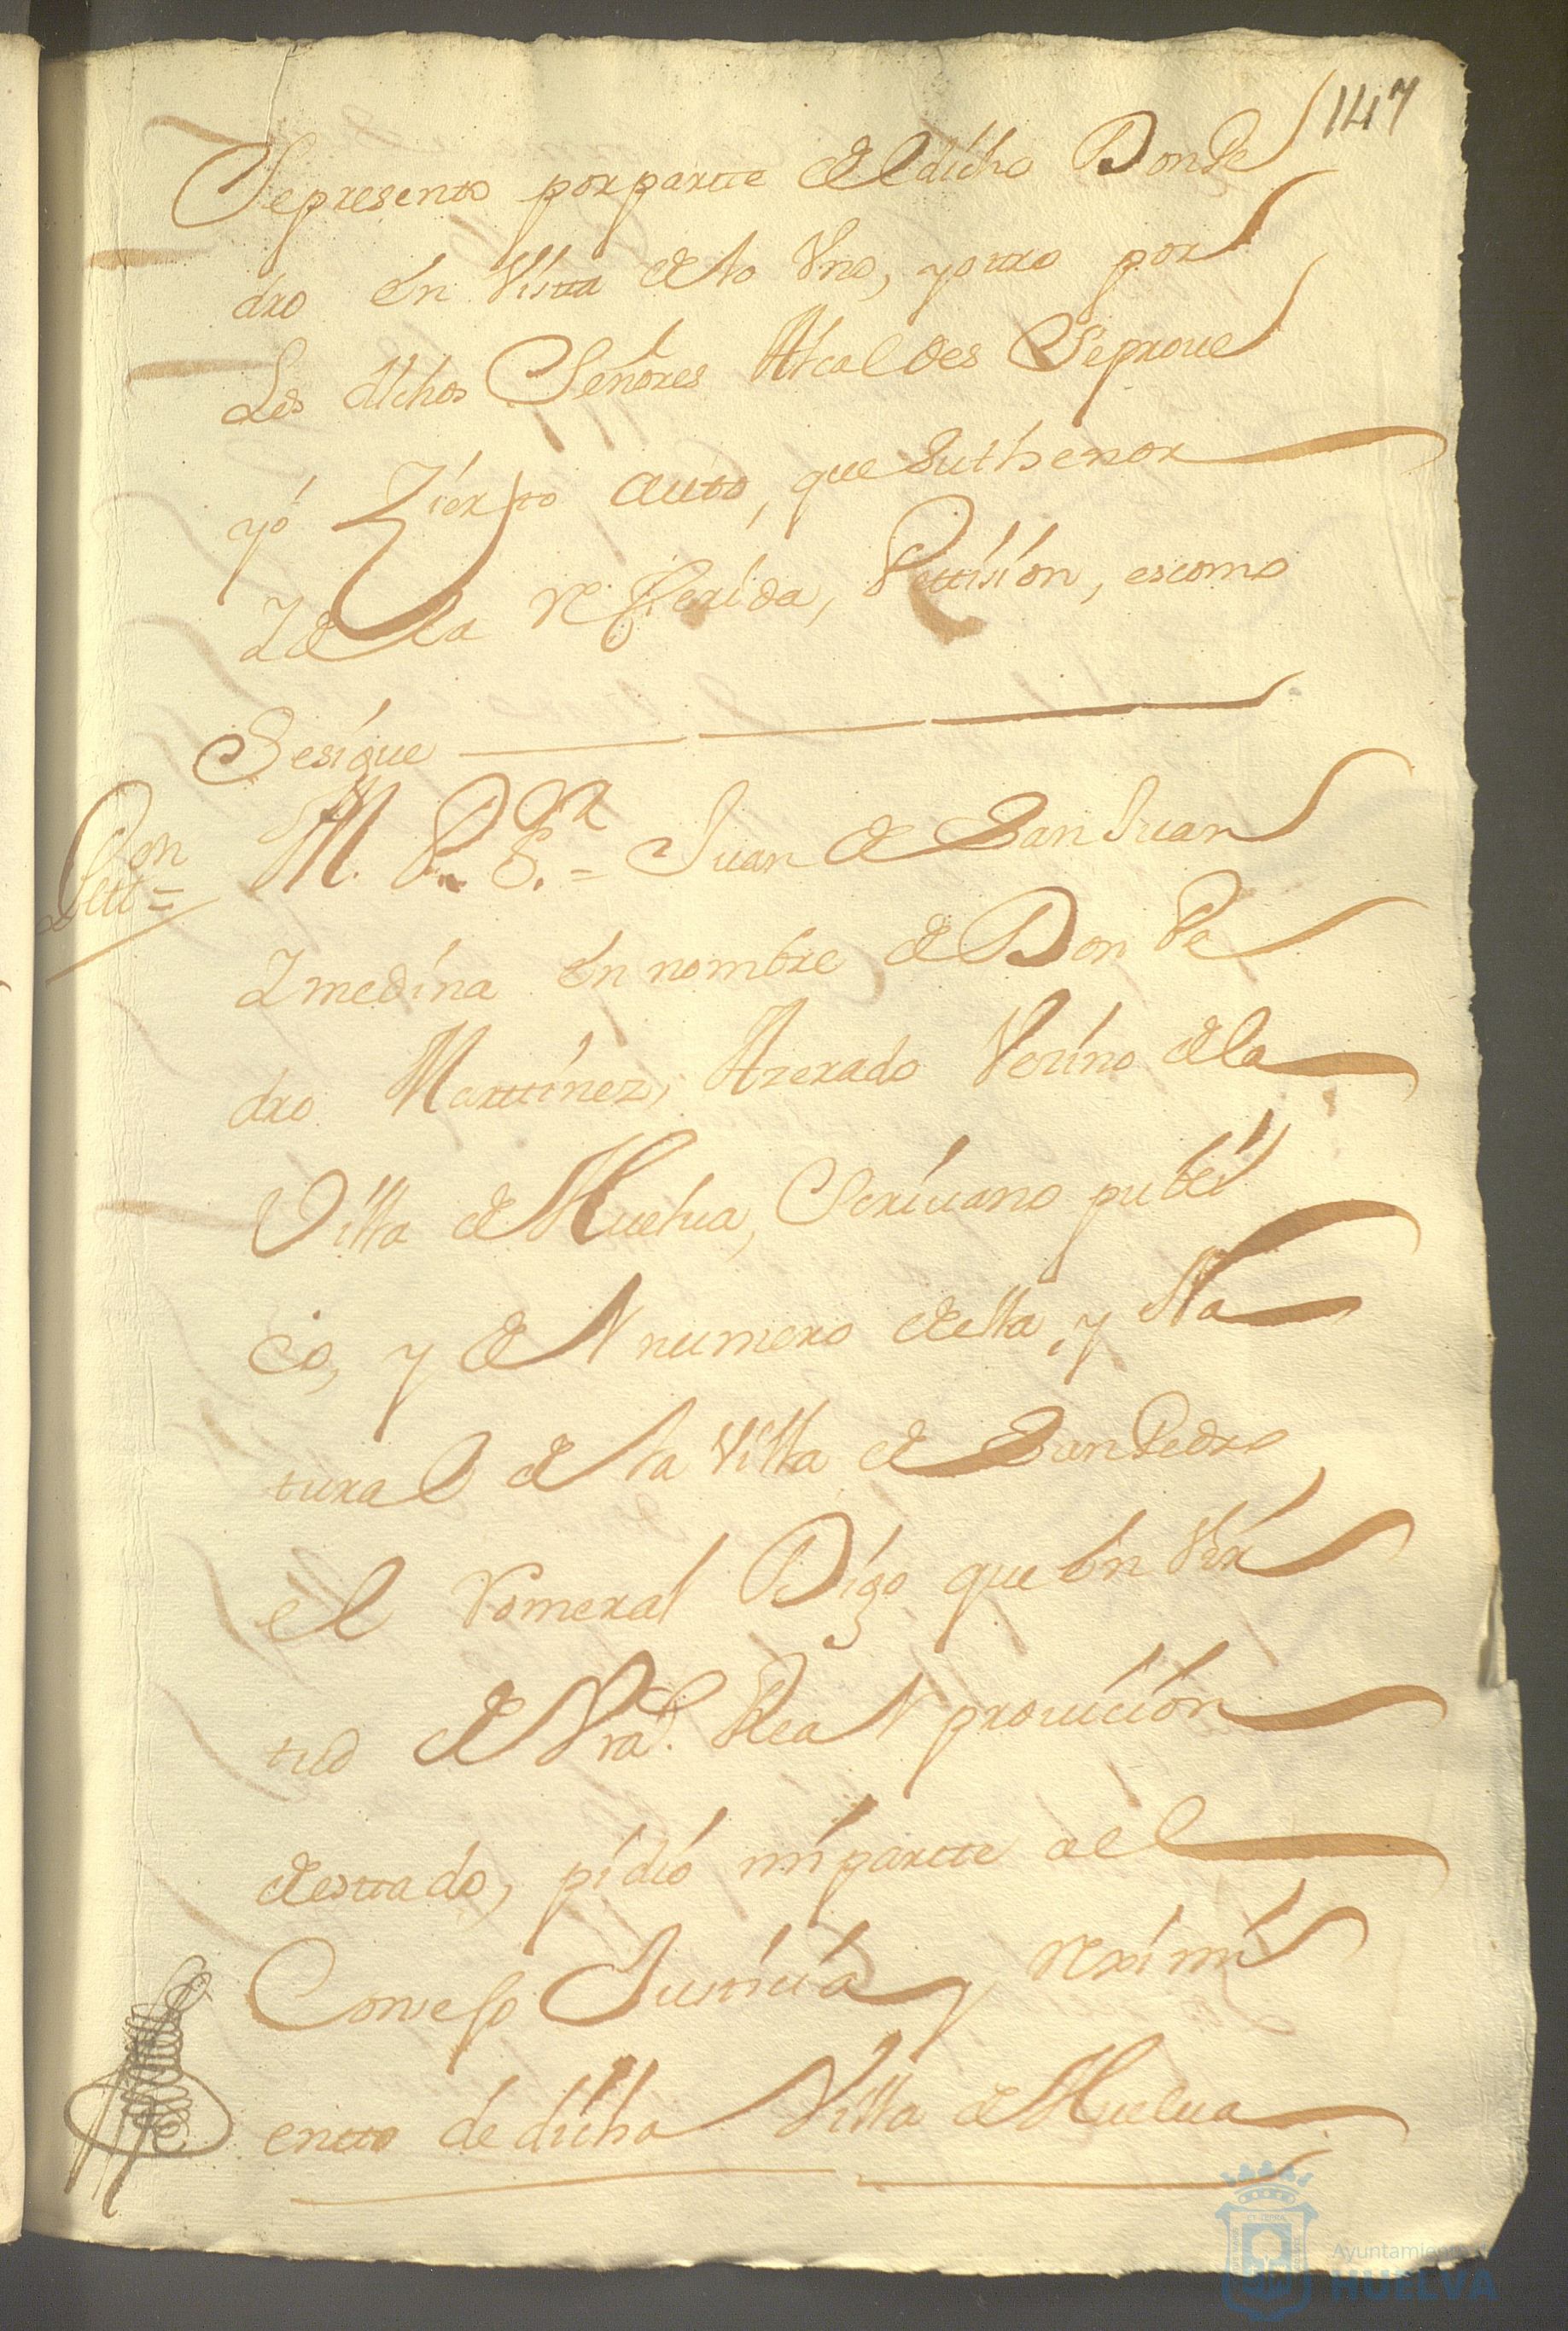 147
Sepresento porpartte deldicho Don Pe
dro en Vistta delo Uno, yotro por
Los dichos Señores Alcaldes Seproue
yó Zierto auto, quesuthenor
Ydela refferida, Pettision, escomo
Sesigue
Petton=
M. P. Sor.= Juan de San Juan
Ymedina en nombre de Don Pe
dro Marttinez, Azerado Vezino dela
Villa de Huelua, Scriuano publi
co, y del numero della, y Na
tural de la Villa de San Pedro
el Romeral Digo que en Vir
tud de Vra. Real prouicion
desttado, pidió mi partte ael
Consejo Justticia y reximi
entto de dicha Villa de Huelua
Ayuntamiento de
HUELVA